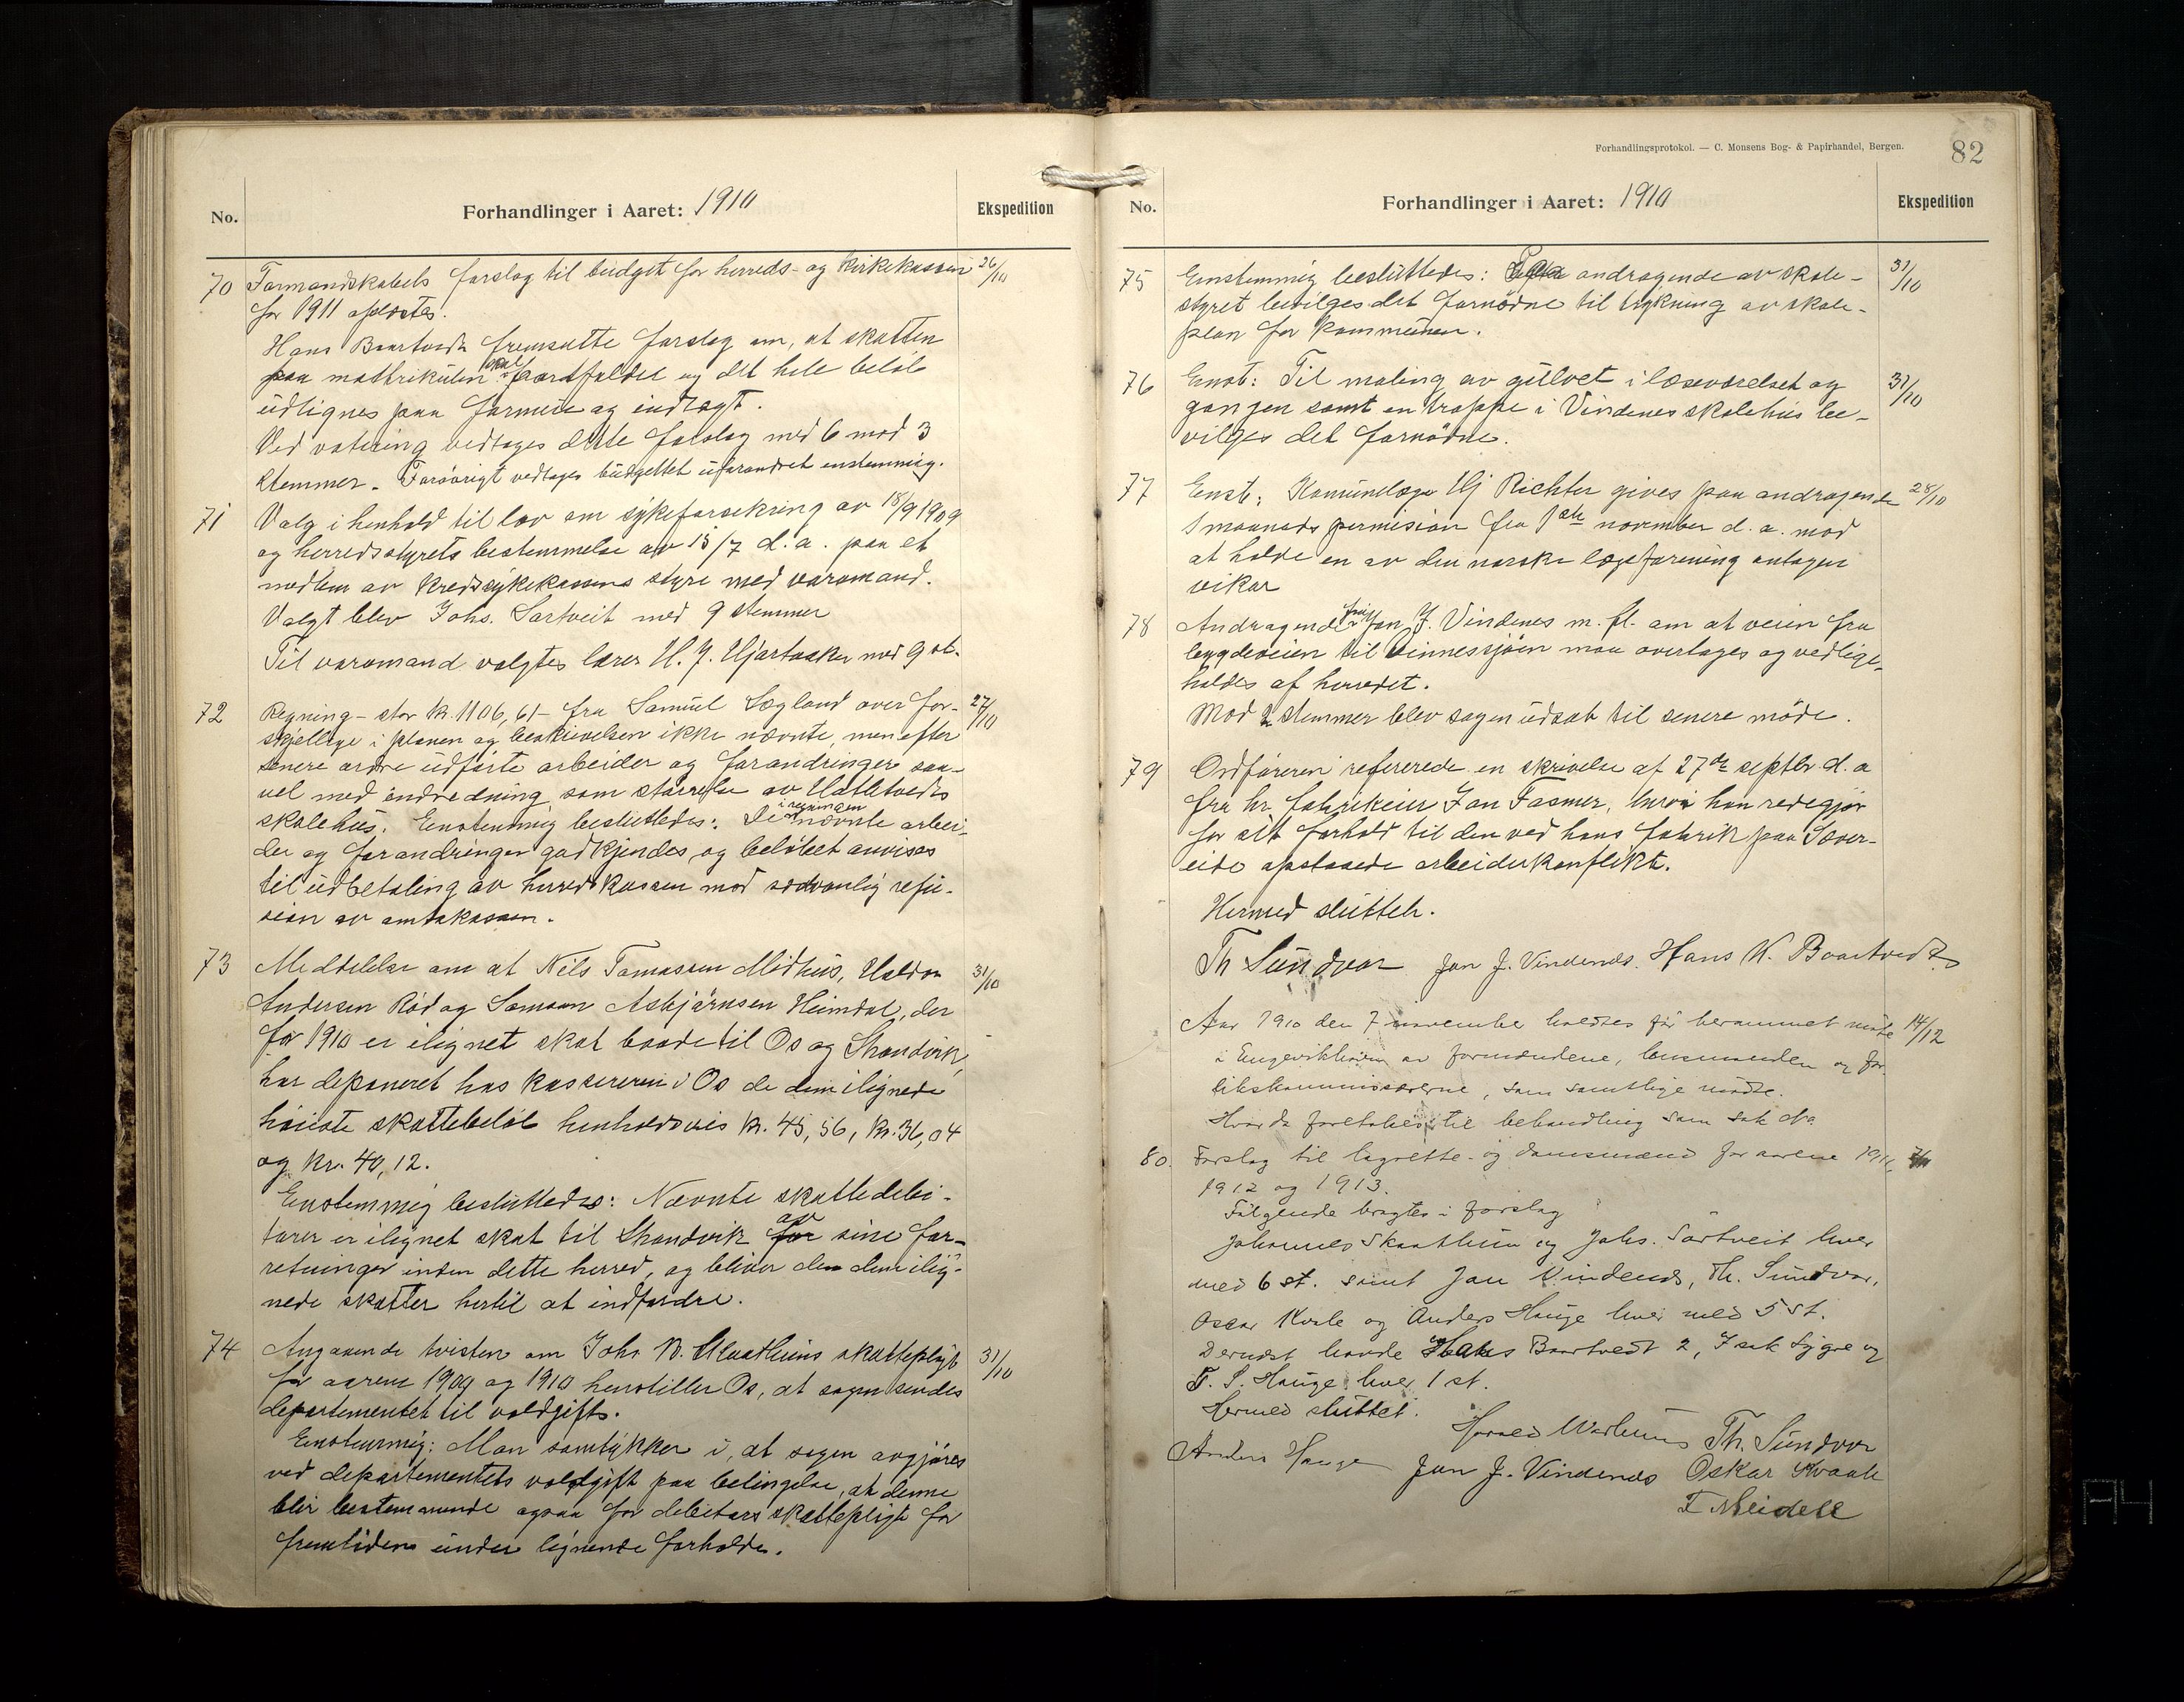 No.
Forhandlinger i Aaret: 1910
Ekspedition
70 Formandskabets forslag til budget for herreds- og kirkekassen 26/10
for 1911 oplæstes.
Hans Baartvedt fremsatte forslag om, at skatten
paa matrikulen skal bortfaldes og det hele beløb
udlignes paa formue og indtægt.
Ved votering vedtoges dette forslag med 6 mod 3
stemmer. Forøvrigt vedtoges budgettet uforandret enstemmig.
71 Valg i henhold til lov om sykeforsekring av 18/9 1909
og herredsstyrets bestemmelse av 15/7 d. a. paa et
medlem av kredssykekassens styre med varamand.
Valgt blev Johs. Sørtveit med 9 stemmer
Til varamand valgtes lærer H. J. Hjartaaker med 9 st.
72 Regning - stor kr. 1106,61 - fra Samuel Søgland over for- 27/10
skjellige i planen og beskrivelsen ikke nævnte, men efter
senere ordre udførte arbeider og forandringer saa-
vel med indredning som størrelse av Hatletvedts
skolehus. Enstemmig besluttedes: De i regningen nævnte arbei-
der og forandringer godkjendes og beløbet anvises
til udbetaling av herredskassen mod sedvanlig refu-
sion av amtskassen.
73 Meddelelse om at Nils Tomassen Midhus, Haldor 31/10
Andersen Rød og Samson Asbjørnsen Heimdal, der
for 1910 er ilignet skat baade til Os og Strandvik,
har deponeret hos kassereren i Os de dem ilignede
høieste skattebeløb henholdsvis kr. 45,56, kr. 36,04
og kr. 40,12.
Enstemmig besluttedes: Nævnte skattedebi-
torer er ilignet skat til Strandvik for av sine for-
retninger inden dette herred, og bliver de dem ilig-
nede skatter hertil at indfordre.
74 Angaaende tvisten om Johs K. Skaathuns skattepligt 31/10
for aarene 1909 og 1910 henstiller Os, at sagen sendes
departementet til voldgift.
Enstemmig: Man samtykker i, at sagen avgjøres
ved departementets voldgift paa betingelse, at denne
blir bestemmende ogsaa for debitors skattepligt for
fremtiden under lignende forholde.
Forhandlingsprotokol. — C. Monsens Bog- & Papirhandel, Bergen.
82
No.
Forhandlinger i Aaret: 1910
Ekspedition
75 Enstemmig besluttedes: andragende av skole- 31/10
styret bevilges det fornødne til trykning av skole-
plan for kommunen.
76 Enst: Til maling av gulvet i læseværelset og 31/10
gangen samt en trappe i Vindenes skolehus be-
vilges det fornødne.
77 Enst: Komunelæge Hj Richter gives paa andragende 28/10
1 maaneds permision fra 1ste november d. a. mod
at holde en av den norske lægeforening antagen
vikar
78 Andragende fra Jan J. Vindenes m. fl. om at veien fra
bygdeveien til Vinnessjøen maa overtages og vedlige-
holdes af herredet.
Mod 2 stemmer blev sagen udsat til senere møde.
79 Ordføreren refererede en skrivelse af 27de septbr d. a
fra hr. fabrikeier Jan Fasmer, hvori han redegjør
for sit forhold til den ved hans fabrik paa Sæver-
eide opstaaede arbeiderkonflikt.
Hermed sluttet.
Th Sundvor Jan J. Vindenes. Hans K. Baartvedt
Aar 1910 den 7 november holdtes før berammet møte 14/12
i Engevikhavn av formændene, lensmanden og for-
likskommissærerne, som samtlige mødte.
Hvorda foretokes til behandling som sak No
80. Forslag til lagrette- og domsmænd for aarene 1911,
1912 og 1913.
Følgende bragtes i forslag
Johannes Skaathun og Johs. Sørtveit hver
med 6 st. samt Jan Vindenes, Th. Sundvor,
Oscar Kvale og Anders Hauge hver med 5 st.
Dernæst havde Hans Baartvedt 2, Isak Lygre og
T. S. Hauge hver 1 st.
Hermed sluttet.
Th. Sundvor
Anders Hauge Jan J. Vindenes Oskar Kvaale
F Meidell